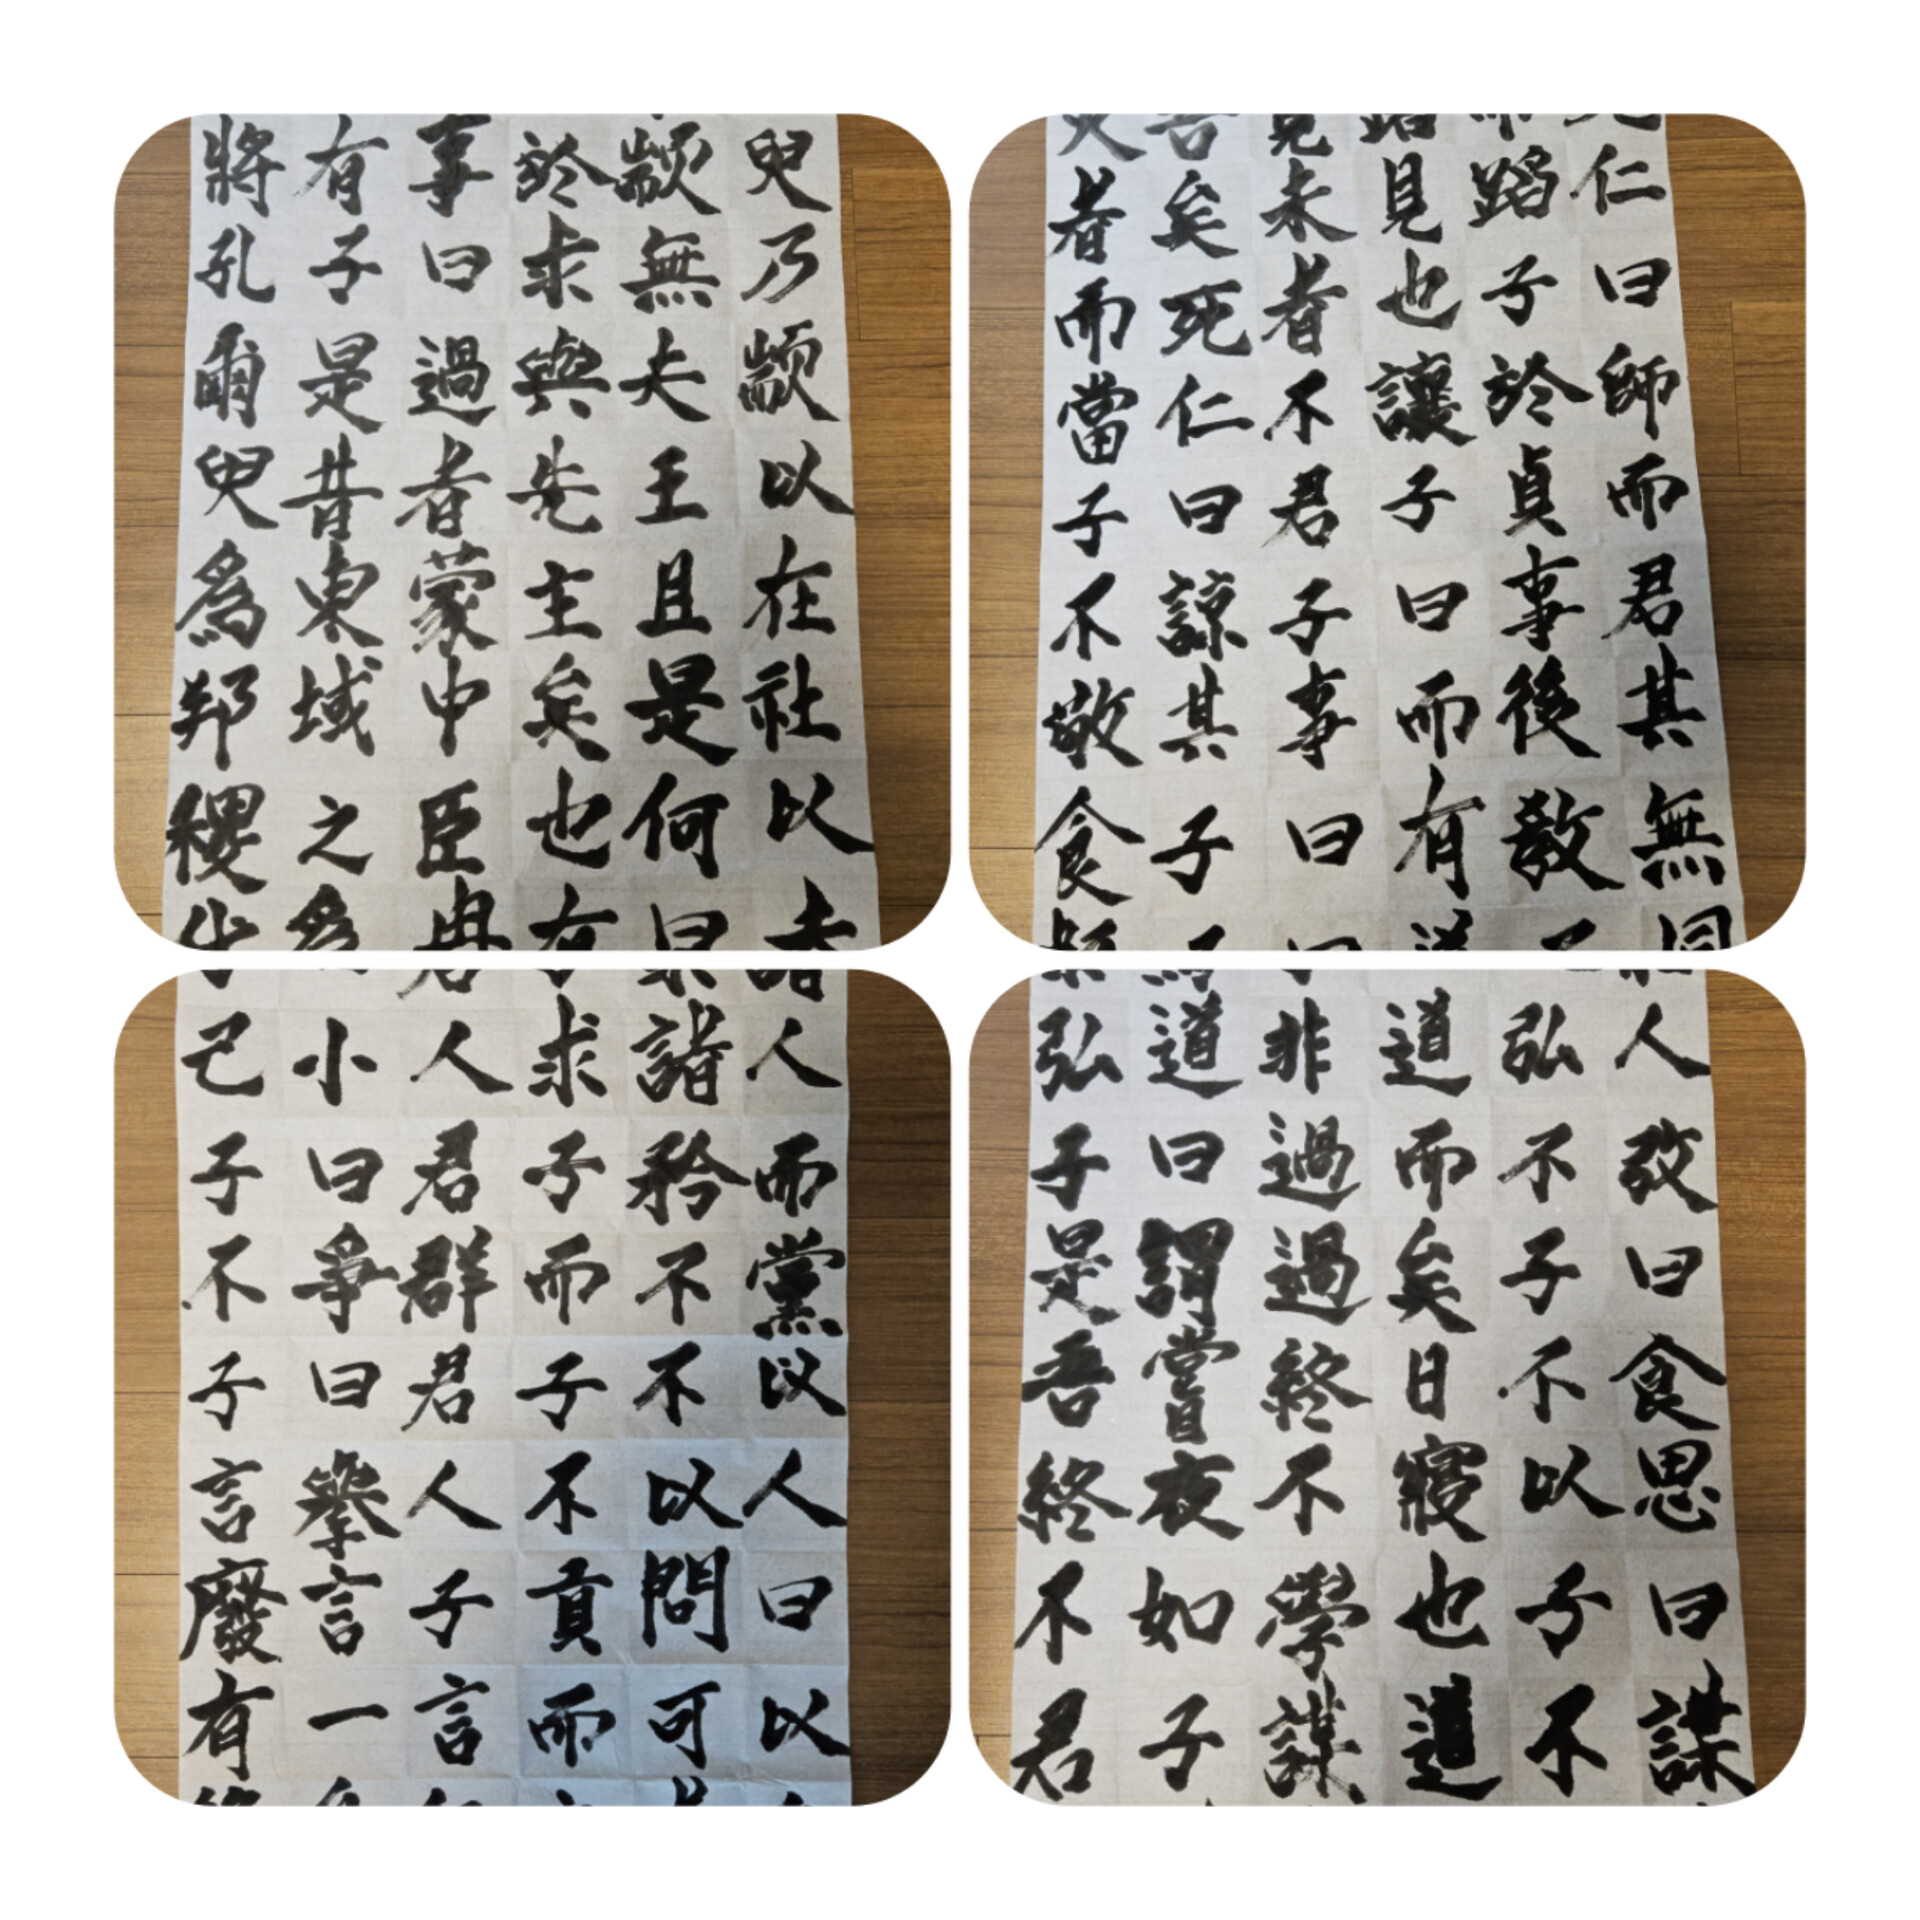 將有事於顓臾
孔子曰求無乃
爾是過與夫顓
臾昔者先王以
爲東蒙主且在
邦域中矣是社
稷之臣也何以
者矣未見蹈仁
而死者也子曰
當仁不讓於師
子曰君子貞而
不諒子曰事君
敬其事而後其
食子曰有教無
己小人求諸人
子曰君子矜而
不爭群而不黨
子曰君子不以
言擧人不以人
廢言子貢問曰
有一言而可以
弘道非道弘人
子曰過而不改
是謂過矣子曰
吾嘗終日不食
終夜不寢以思
不如學也子曰
君子謀道不謀